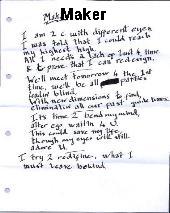 Maker
I am 2 c with different eyes
I was told that I could reach
my highest high.
All I needs a lack of and time
2 prove that I can redesign.
We'll meet tomorrow @ the 1st
line, we'll be all parties
leadin' blind.
With new dimensions to find,
eliminatin all our past guide lines.
Its time 2 bend my mind,
alter ego waitin 4 U.
This could save my life,
though my eyes will still
adore U.
I try 2 redefine, what I
must leave behind.